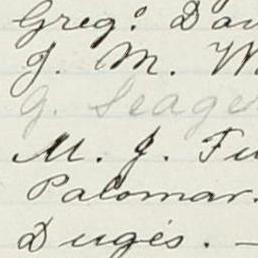 Greg.º Dav
J. M. W
G. Seage
M. J. Fu
Palomar.
Dugés. —